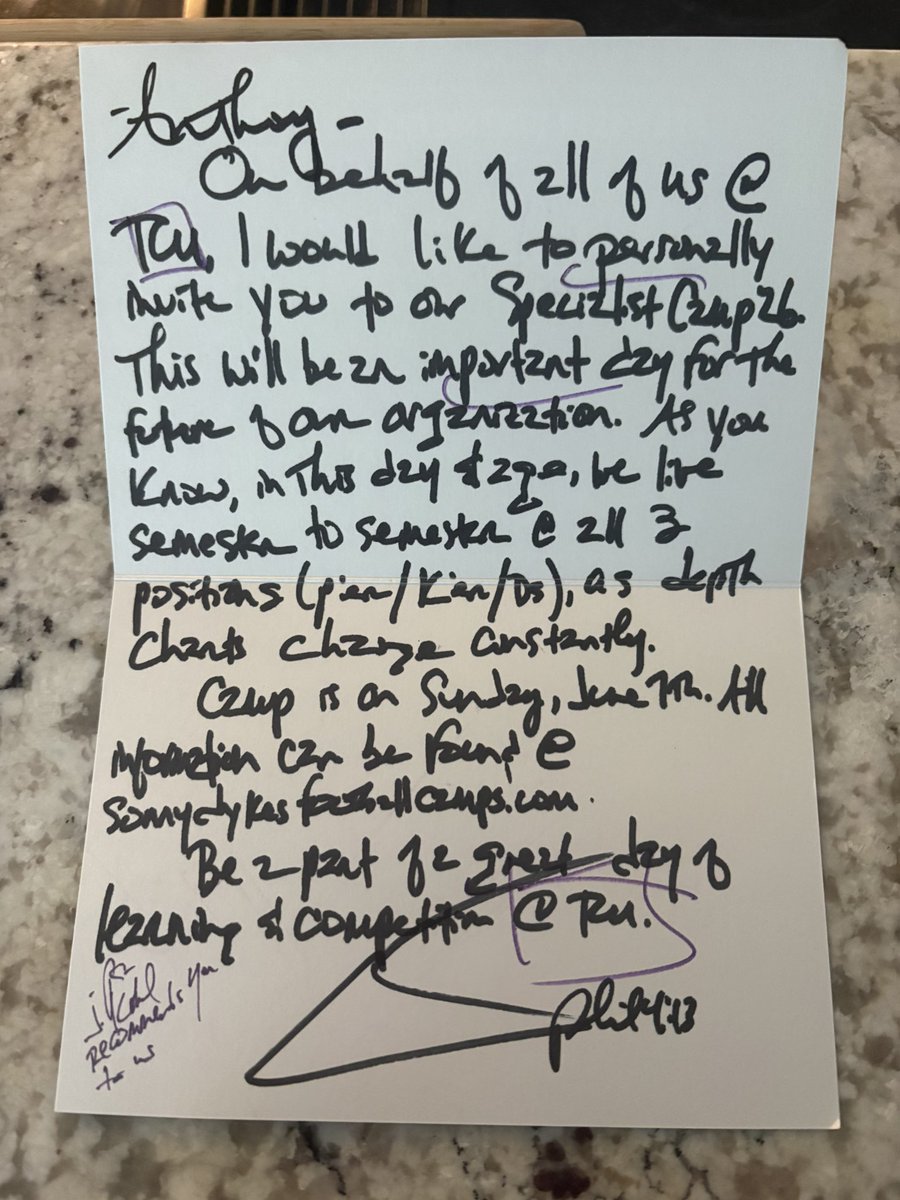 Anthony -
On behalf of all of us @
TCU, I would like to personally
invite you to our Specialist Camp 26.
This will be an important day for the
future of our organization. As you
know, in this day & age, be live
semester to semester @ all 3
positions (p/er/K/er/DS), as depth
charts change constantly.
Camp is on Sunday, June 7th. All
information can be found @
sonnydykesfootballcamps.com.
Be a part of a great day of
learning & competition @ TCU.
Phil 4:13
recommends you
to us